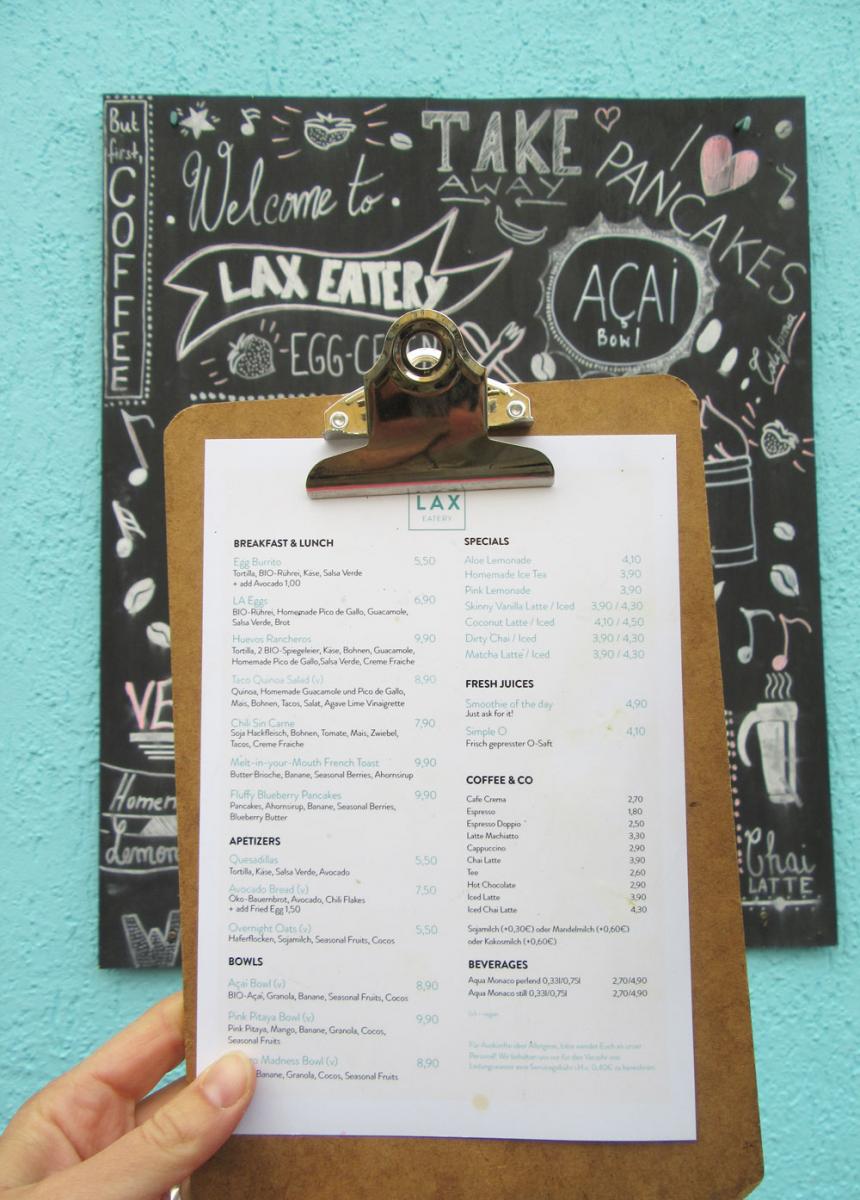 But
first,
COFFEE
Welcome to
TAKE
AWAY
I
PANCAKES
LAX EATERY
AÇAi
Bowl
California
EGG-CE
VE
Homem
Lemon
Chai
LATTE
W
LAX
EATERY
BREAKFAST & LUNCH
Egg Burrito 5,50
Tortilla, BIO-Rührei, Käse, Salsa Verde
+ add Avocado 1,00
LA Eggs 6,90
BIO-Rührei, Homemade Pico de Gallo, Guacamole,
Salsa Verde, Brot
Huevos Rancheros 9,90
Tortilla, 2 BIO-Spiegeleier, Käse, Bohnen, Guacamole,
Homemade Pico de Gallo,Salsa Verde, Creme Fraiche
Taco Quinoa Salad (v) 8,90
Quinoa, Homemade Guacamole und Pico de Gallo,
Mais, Bohnen, Tacos, Salat, Agave Lime Vinaigrette
Chili Sin Carne 7,90
Soja Hackfleisch, Bohnen, Tomate, Mais, Zwiebel,
Tacos, Creme Fraiche
Melt-in-your-Mouth French Toast 9,90
Butter Brioche, Banane, Seasonal Berries, Ahornsirup
Fluffy Blueberry Pancakes 9,90
Pancakes, Ahornsirup, Banane, Seasonal Berries,
Blueberry Butter
APETIZERS
Quesadillas 5,50
Tortilla, Käse, Salsa Verde, Avocado
Avocado Bread (v) 7,50
Öko-Bauernbrot, Avocado, Chili Flakes
+ add Fried Egg 1,50
Overnight Oats (v) 5,50
Haferflocken, Sojamilch, Seasonal Fruits, Cocos
BOWLS
Açai Bowl (v) 8,90
BIO-Açai, Granola, Banane, Seasonal Fruits, Cocos
Pink Pitaya Bowl (v) 9,90
Pink Pitaya, Mango, Banane, Granola, Cocos,
Seasonal Fruits
Madness Bowl (v) 8,90
Banane, Granola, Cocos, Seasonal Fruits
SPECIALS
Aloe Lemonade 4,10
Homemade Ice Tea 3,90
Pink Lemonade 3,90
Skinny Vanilla Latte / Iced 3,90 / 4,30
Coconut Latte / Iced 4,10 / 4,50
Dirty Chai / Iced 3,90 / 4,30
Matcha Latte / Iced 3,90 / 4,30
FRESH JUICES
Smoothie of the day 4,90
Just ask for it!
Simple O 4,10
Frisch gepresster O-Saft
COFFEE & CO
Cafe Crema 2,70
Espresso 1,80
Espresso Doppio 2,50
Latte Machiatto 3,30
Cappuccino 2,90
Chai Latte 3,90
Tee 2,60
Hot Chocolate 2,90
Iced Latte 3,90
Iced Chai Latte 4,30
Sojamilch (+0,30€) oder Mandelmilch (+0,60€)
oder Kokosmilch (+0,60€)
BEVERAGES
Aqua Monaco perlend 0,33l/0,75l 2,70/4,90
Aqua Monaco still 0,33l/0,75l 2,70/4,90
(v) = vegan
Für Auskünfte über Allergene, bitte wendet Euch an unser
Personal! Wir behalten uns vor für den Verzehr von
Leitungswasser eine Servicegebühr i.H.v. 0,40€ zu berechnen.